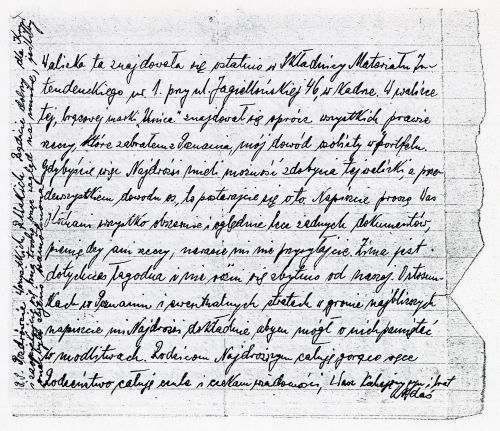 Walizka ta znajdowała się ostatnio w Składnicy Materiału In-
tendenckiego nr. 1. przy ul. Jagiellońskiej 46, w Radomiu. W walizce
tej, brązowej marki "Unica" znajdował się oprócz wszystkich prawie
rzeczy, które zabrałem z Poznania, mój dowód osobisty w portfelu.
Gdybyście więc Najdrożsi mieli możność zdobycia tej walizki a prze-
dewszystkiem dowodu os, to postarajcie się o to. Napiszcie proszę Was
wszystko obszernie i oględnie lecz żadnych dokumentów,
pieniędzy ani rzeczy, narazie mi nie przysyłajcie. Zima jest
dotychczas łagodna i nie różni się zbytnio od naszej. O stosun-
kach w Poznaniu i ewentualnych stratach w gronie najbliższych
napiszcie mi Najdrożsi dokładnie abym mógł o nich pamiętać
w modlitwach. Rodzicom Najdroższym całuję gorąco ręce
Rodzeństwo całuję czule i czekam wiadomości, Wasz Kochający syn i brat
Pozdrowienia Wszystkich Bliskich. Bądźcie dobrej dla